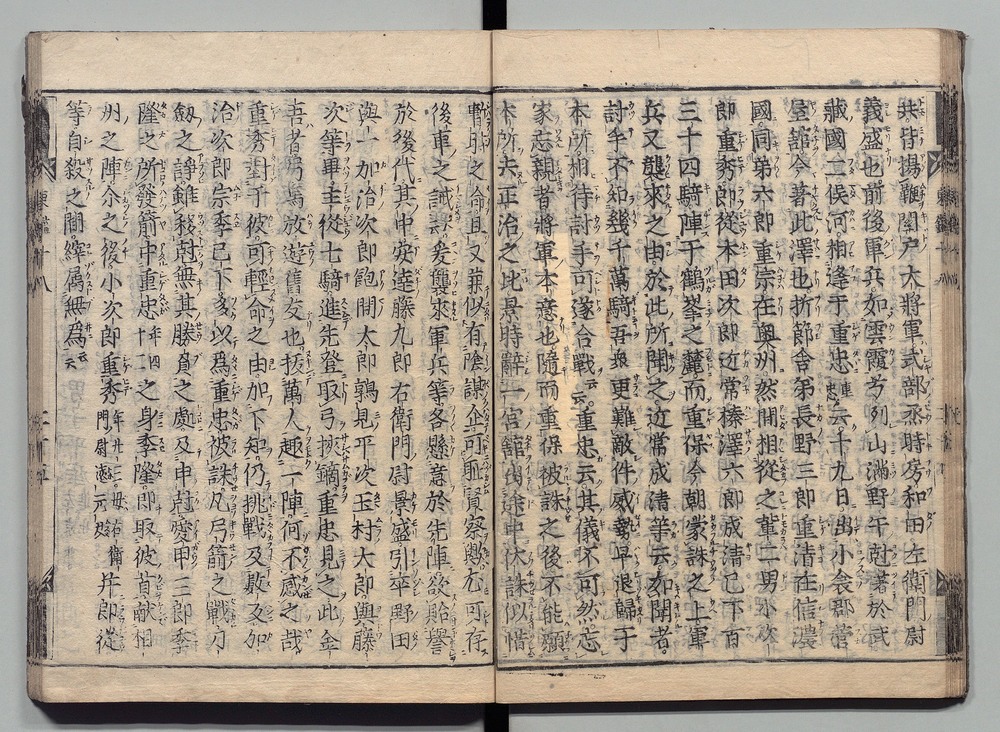 共皆揚鞭關戸大將軍式部丞時房和田左衛門尉
義盛也前後軍兵如雲霞兮列山滿野午尅著於武
藏國二俣河相逢于重忠重忠云去十九日出小衾郡菅
屋舘今著此澤也折節舍弟長野三郎重清在信濃
國同弟六郎重宗在奥州然間相從之輩二男小次
郎重秀郎從本田次郎近常榛澤六郎成清已下百
三十四騎陣于鶴峯之麓而重保今朝蒙誅之上軍
兵又襲來之由於此所聞之近常成清等云如聞者。
討手不知幾千萬騎吾衆更難敵件威勢早退歸于
本所相待討手可遂合戰云云。重忠云其儀不可然忘
家忘親者將軍本意也隨而重保被誅之後不能顧
本所去正治之比景時辭一宮舘於途中伏誅似惜
暫時之命且又兼似有陰謀企可耻賢察歟尤可存
後車之誡云云爰襲來軍兵等各懸意於先陣欲貽譽
於後代其中安達藤九郎右衛門尉景盛引卒野田
與一加治次郎飽間太郎鶴見平次玉村大郎與藤
次等畢主從七騎進先登取弓挾鏑重忠見之此金
吾者弓馬放遊舊友也抜萬人趣一陣何不感之哉
重秀對于彼可輕命之由加下知仍挑戰及數反加
治次郎宗季已下多以爲重忠被誅凡弓箭之戰刀
劔之諍雖移尅無其勝負之處及申尅愛甲三郎季
隆之所發箭中重忠年四十二之身季隆即取彼首獻相
州之陣尒之後小次郎重秀年廿三。母右衛門尉遠元女并郎從
等自殺之間縡屬無爲云云
東鑑十八